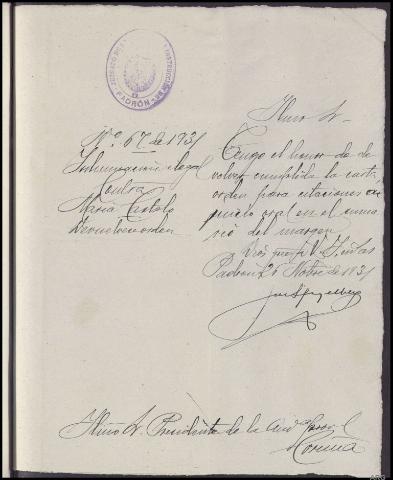 JUZGADO DE INSTRUCCION
PADRÓN
Nº 67 de 1931
Inhumación ilegal
Contra
María Castelo
Devuelve orden
Ilmo Sr
Tengo el honor de de
volver cumplida la carta
orden para citaciones a
juicio oral en el suma
rio del margen
Dios gue a V.I. m. as
Padron 26 Nbre de 1931
Ilmo Sr. Presidente de la Aud Provcl
Coruña